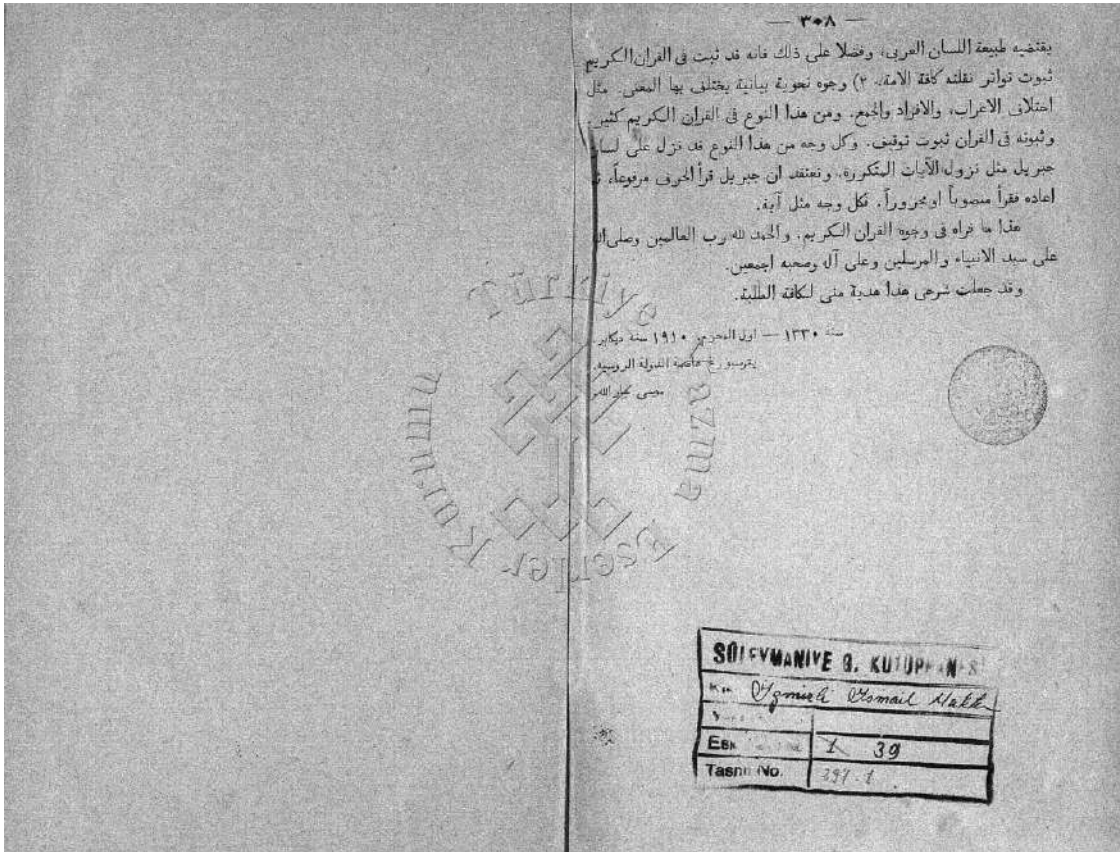 — ٣٠٨ —
يقتضيه طبيعة اللسان العربى، وفضلا على ذلك فانه قد ثبت فى القران الكريم
ثبوت تواتر نقلته كافة الامة، ٢) وجوه نحوية بيانية يختلف بها المعنى. مثل
اختلاف الاعراب، والافراد والجمع. ومن هذا النوع فى القران الكريم كثير.
وثبوته فى القران ثبوت توقيف. وكل وجه من هذا النوع قد نزل على لسان
جبريل مثل نزول الآيات المتكررة، ونعتقد ان جبريل قرأ الحرف مرفوعاً،
اعاده فقرأ منصوباً او مجروراً. فكل وجه مثل آية.
هذا ما نراه فى وجوه القران الكريم. والحمد لله رب العالمين وصلى الله
على سيد الانبياء والمرسلين وعلى آله وصحبه اجمعين.
وقد جعلت شرحى هذا هدية منى لكافة الطلبة.
سنة ١٣٣٠ — اول المحرم، ١٩١٠ سنة ديكابر
عاصمة الدولة الروسية.
Türkiye Yazma Eserler Kurumu
SÜLEYMANİYE G. KÜTÜPHANESİ
Izmirli Ismail Hakkı
Esk 1 39
Tasnif No. 297.1